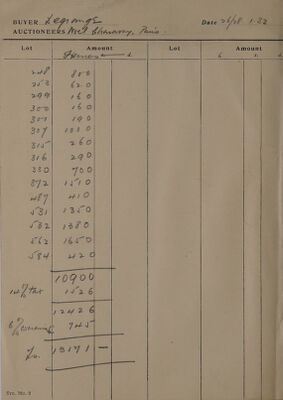 BUYER Legrange Date 26/28 1.32
AUCTIONEERS Paris.
Lot Amount Lot Amount
Francs £ s. d.
248 800
253 620
299 160
300 160
301 190
307 1000
315 260
316 290
330 700
372 1510
487 410
531 1350
532 1380
562 1650
584 420
10900
14% tax 1526
12426
6% 745
Fr. 13171 —